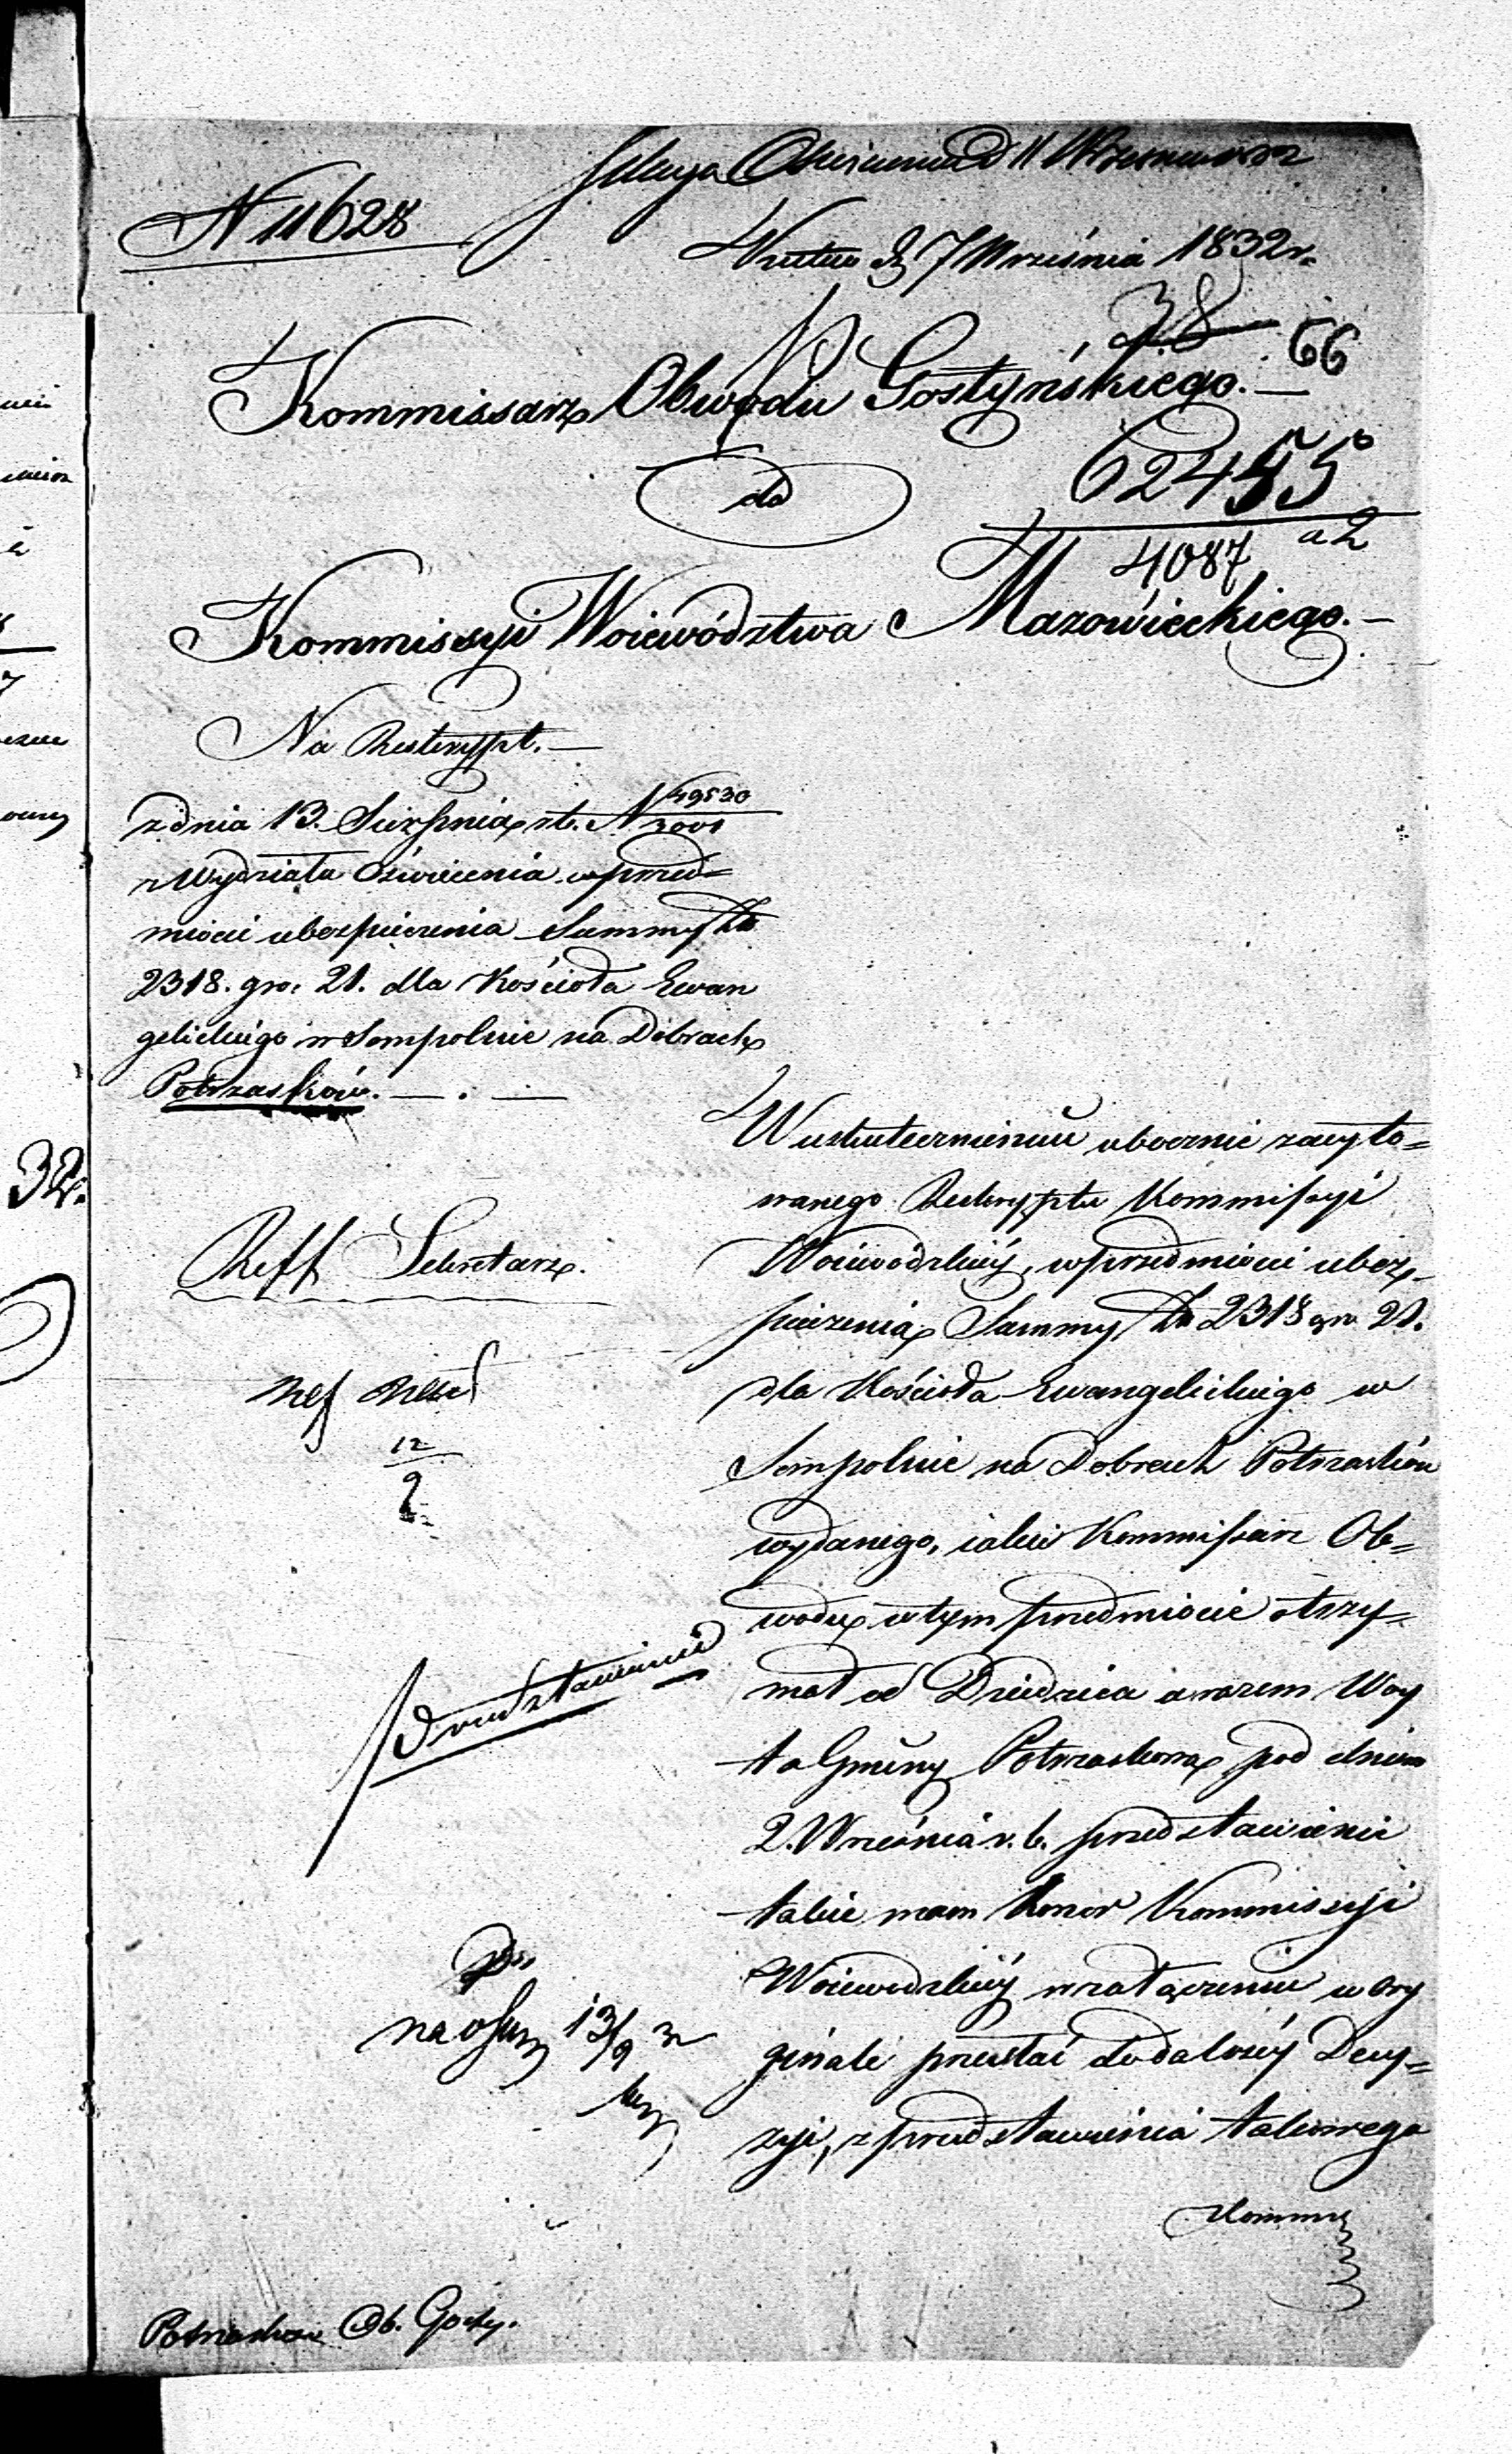 Sekcya Oświecenia D 11 Września 1832
N 11628
Kutno d 7 Września 1832 r.
38
66
Kommissarz Obwodu Gostyńskiego. —
do
62455
4087 a2
Kommissyi Woiewództwa Mazowieckiego. —
Na Reskrypt. —
z dnia 13. Sierpnia r. b. N 49530/3001
z Wydziału Oświecenia w przed=
miocie ubezpieczenia Summy Złp
2318. gro: 21. dla Kościoła Ewan
gelickiego w Sompolnie na Dobrach
Potrzasków. — . —
W uskutecznieniu ubocznie zacyto=
wanego Reskryptu Kommissyi
Woiewódzkiéy, w przedmiocie ubez-
pieczenia Summy Złp 2318 gro 21.
dla Kościoła Ewangelickiego w
Sompolnie na Dobrach Potrzasków
wydanego, iakie Kommissarz Ob=
wodu w tym przedmiocie otrzy=
mał od Dziedzica a razem Woy
ta Gminy Potrzaskowa pod dniem
2. Września r. b. przedstawienie
takie mam honor Kommissyi
Woiewodzkiéy w załączeniu w ory
ginale przesłać do dalszéy Decy=
zyi, z przedstawienia takowego
Kommi
Reff Sekretarz.
Ref
12/9
Przedstawienie
na 13/9 32
Potrzasków Ob. Gosty.
32.